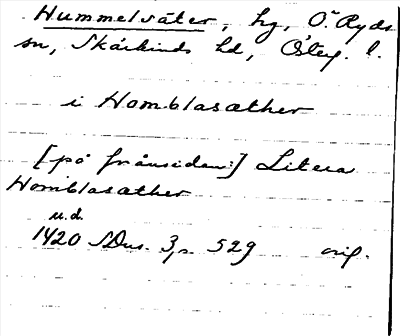 Hummelsäter, hg, Ö. Ryds
sn, Skärkinds hd, Östg. l.
i Homblasæther
[på frånsidan:] Litera
Homblasæther
u.d.
1420 SDns. 3, s. 529 orig.